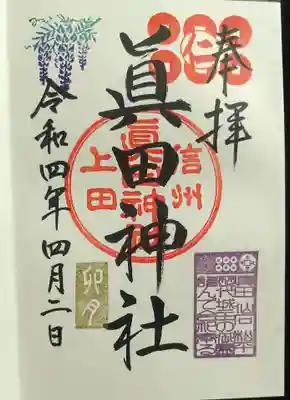 奉拝
眞田神社
信州
上田
眞田神社
卯月
令和四年四月二日